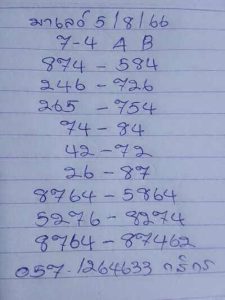 มาเลย์ 5/8/66
7-4 A B
874 - 584
246 - 726
265 - 754
74 - 84
42 - 72
26 - 87
8764 - 5864
5276 - 8274
8764 - 87462
057-1264633